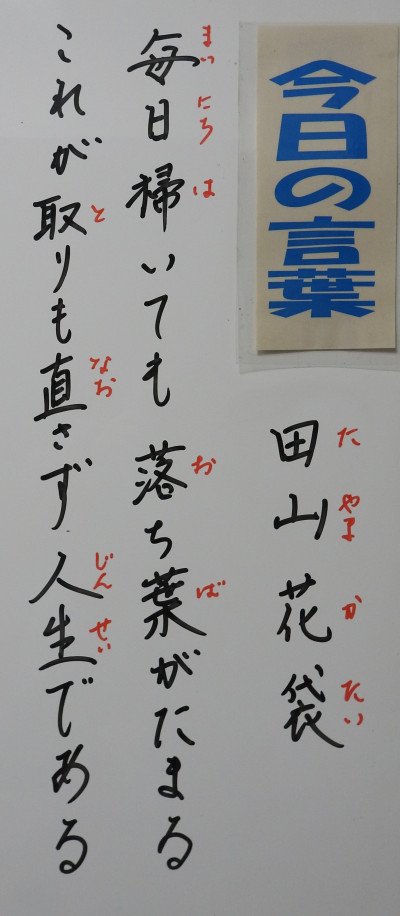 今日の言葉
田山花袋
たやまかたい
毎日掃いても落ち葉がたまる
まいにちはおば
これが取りも直さず人生である
となおじんせい